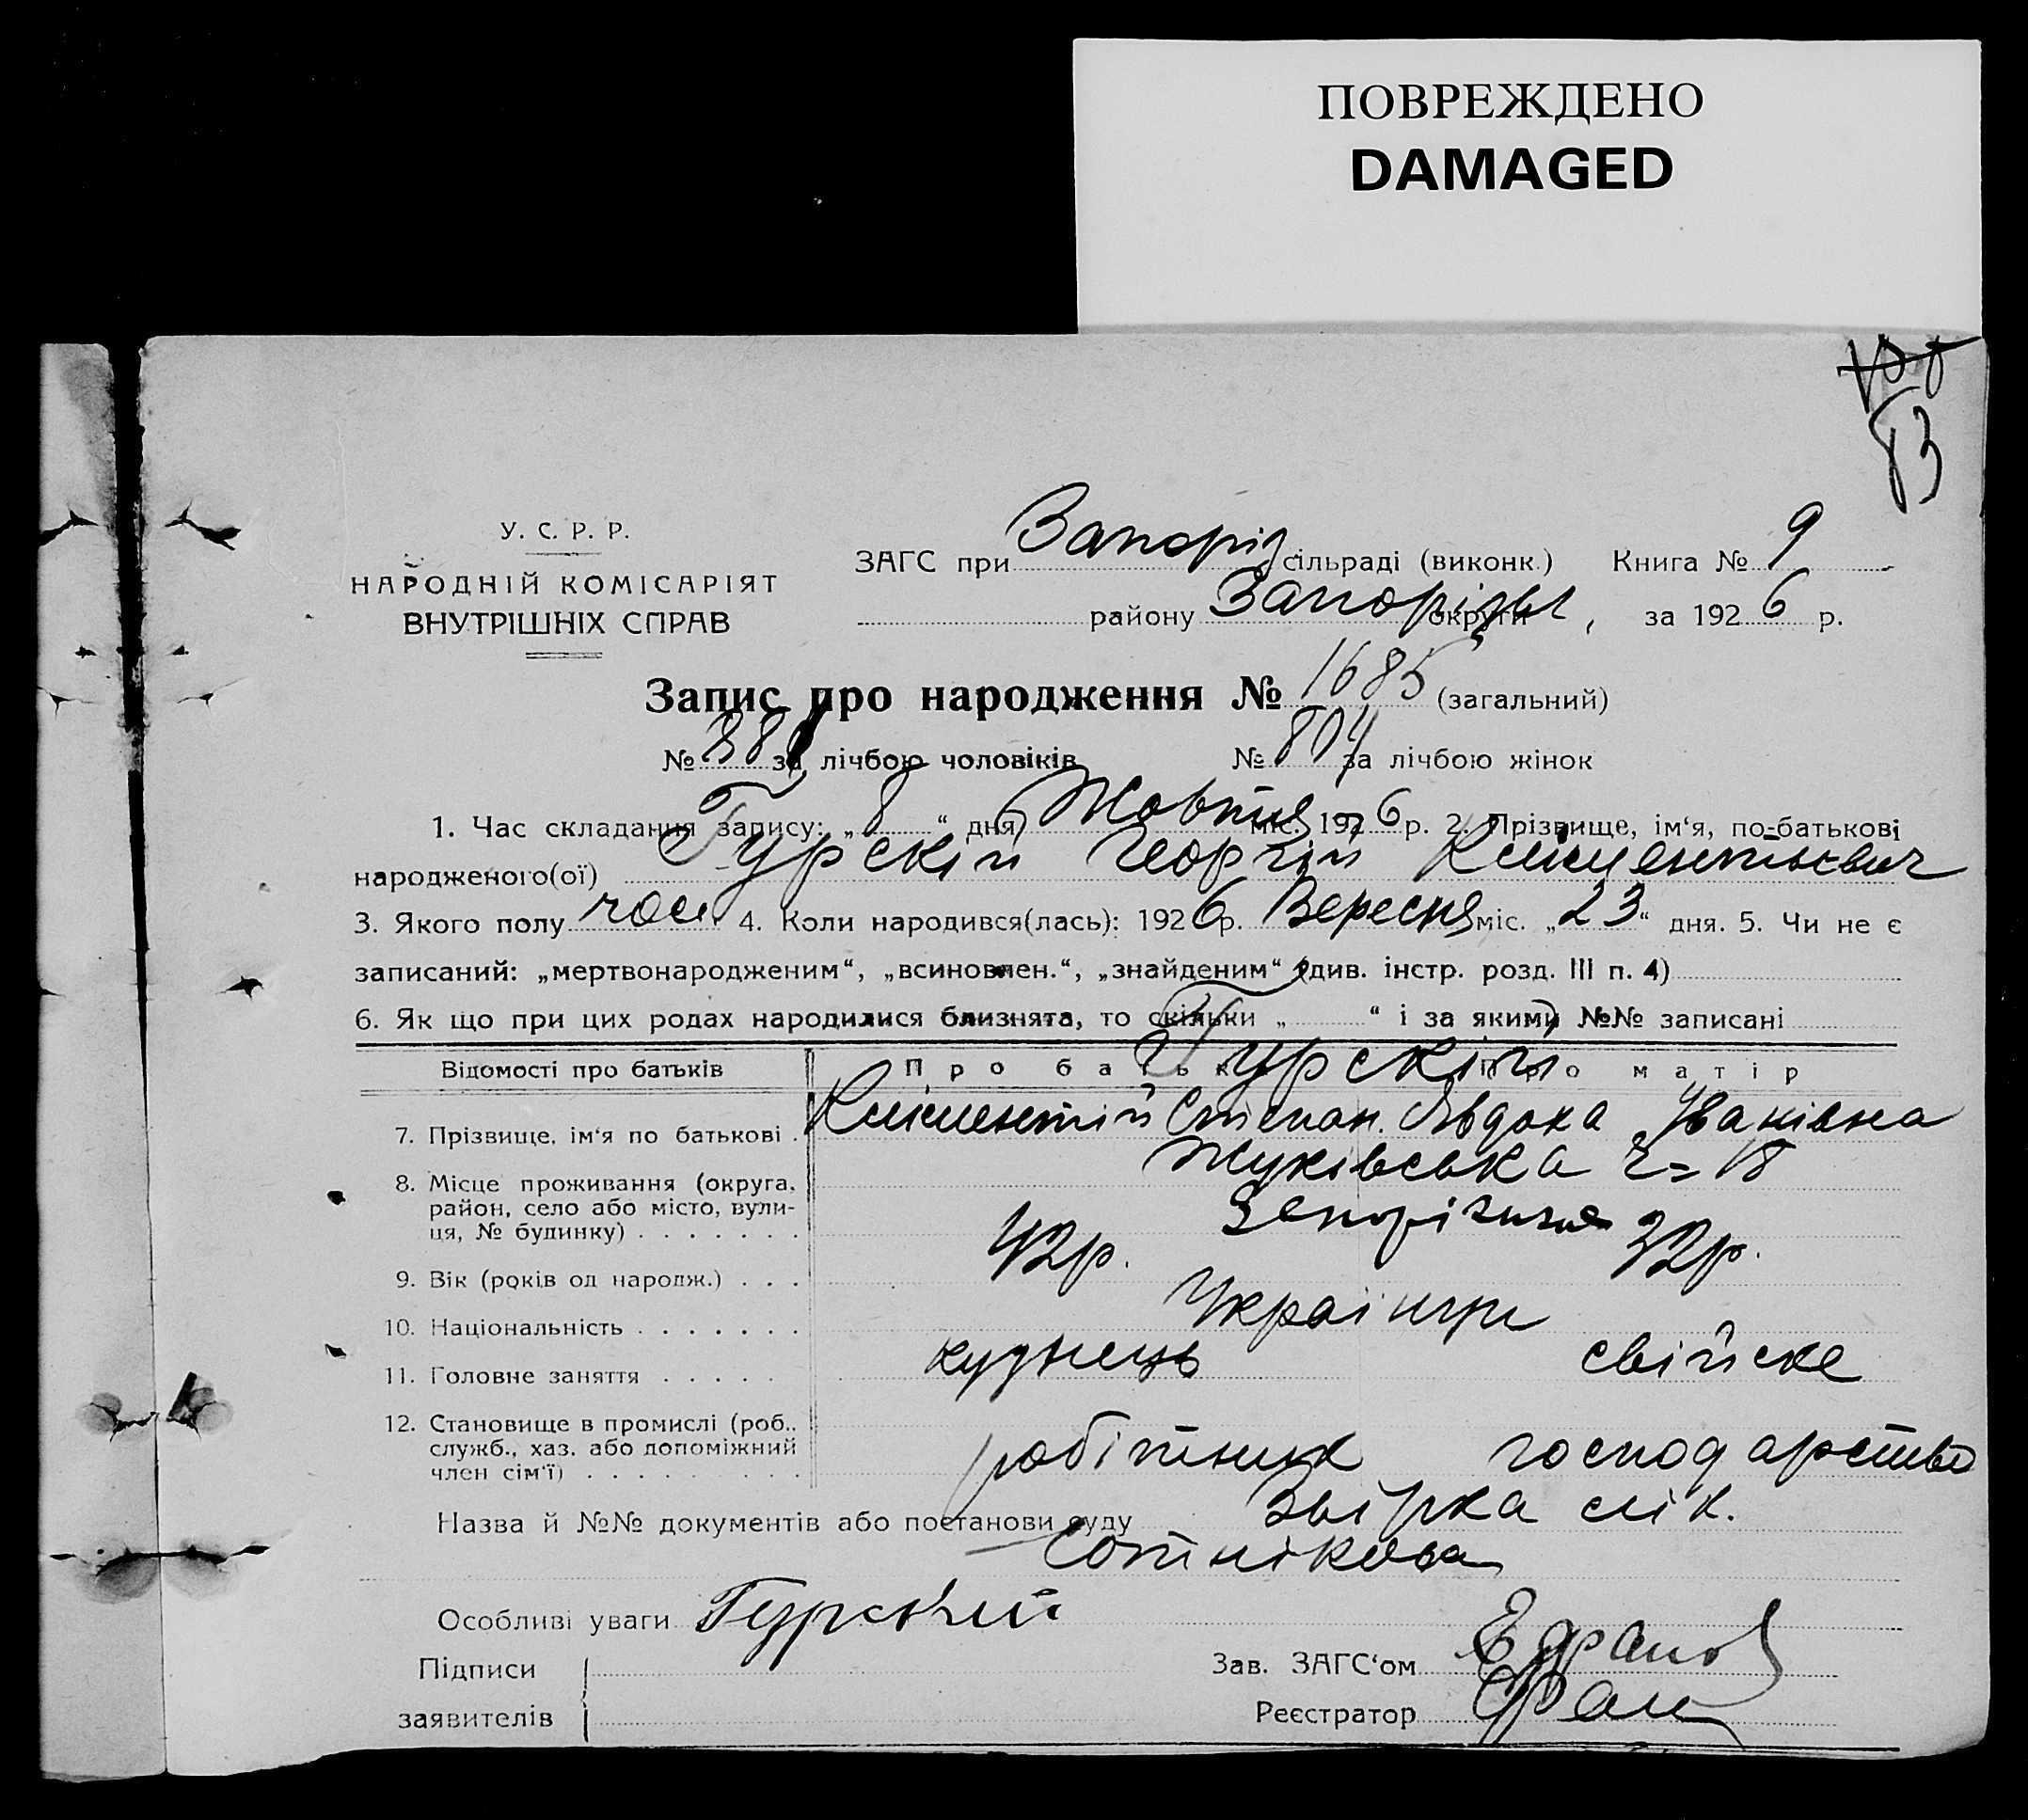 ПОВРЕЖДЕНО
DAMAGED
83
У. С. Р. Р.
НАРОДНІЙ КОМІСАРІЯТ
ВНУТРІШНІХ СПРАВ
ЗАГС при Запоріз сільраді (виконк.) Книга № 9
району Запорізьк округи, за 1926 р.
Запис про народження № 1685 (загальний)
№ 881 за лічбою чоловіків № 804 за лічбою жінок
1. Час складання запису: „8“ дня Жовтня міс. 1926 р. 2. Прізвище, ім‘я, по-батькові
народженого(ої) Гурскій Георгій Кліментьєвич
3. Якого полу чол. 4. Коли народився(лась): 1926 р. Вересня міс. „23“ дня. 5. Чи не є
записаний: „мертвонародженим“, „всиновлен.“, „знайденим“ (див. інстр. розд. III п. 4)
6. Як що при цих родах народилися близнята, то скільки „ “ і за якими №№ записані
Відомості про батьків Про батька Про матір
Гурскій
7. Прізвище, ім‘я по батькові . Кліментій Степан. Явдоха Іванівна
8. Місце проживання (округа, район, село або місто, вули- ця, № будинку) . . . . . . . Жуківська 18
Запоріжжя
9. Вік (років од народж.) . . . 42р. 32р.
10. Національність . . . . . . . Українці
11. Головне заняття . . . . . кузнець свійске
12. Становище в промислі (роб., служб., хаз. або допоміжний член сім‘ї) . . . . . . . . . робітник господарство
Назва й №№ документів або постанови суду Звірка лік.
Сотнікова
Особливі уваги Гурский
Підписи
заявителів
Зав. ЗАГС‘ом
Реєстратор